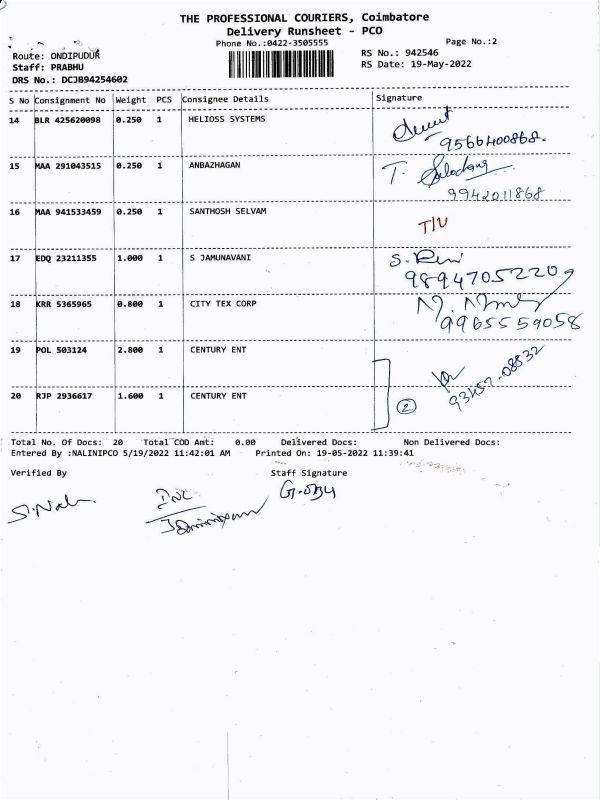 THE PROFESSIONAL COURIERS, Coimbatore
Delivery Runsheet - PCO
Phone No.:0422-3505555 Page No.:2
Route: ONDIPUDUR RS No.: 942546
Staff: PRABHU RS Date: 19-May-2022
DRS No.: DCJB94254602
S No Consignment No Weight PCS Consignee Details Signature
14 BLR 425620098 0.250 1 HELIOSS SYSTEMS
9566400868.
15 MAA 291043515 0.250 1 ANBAZHAGAN T.
9942011868
16 MAA 941533459 0.250 1 SANTHOSH SELVAM
T/U
17 EDQ 23211355 1.000 1 S JAMUNAVANI S.
9894705220
18 KRR 5365965 0.800 1 CITY TEX CORP
9965559058
19 POL 503124 2.800 1 CENTURY ENT
93457-08832
20 RJP 2936617 1.600 1 CENTURY ENT 2
Total No. Of Docs: 20 Total COD Amt: 0.00 Delivered Docs: Non Delivered Docs:
Entered By :NALINIPCO 5/19/2022 11:42:01 AM Printed On: 19-05-2022 11:39:41
Verified By Staff Signature